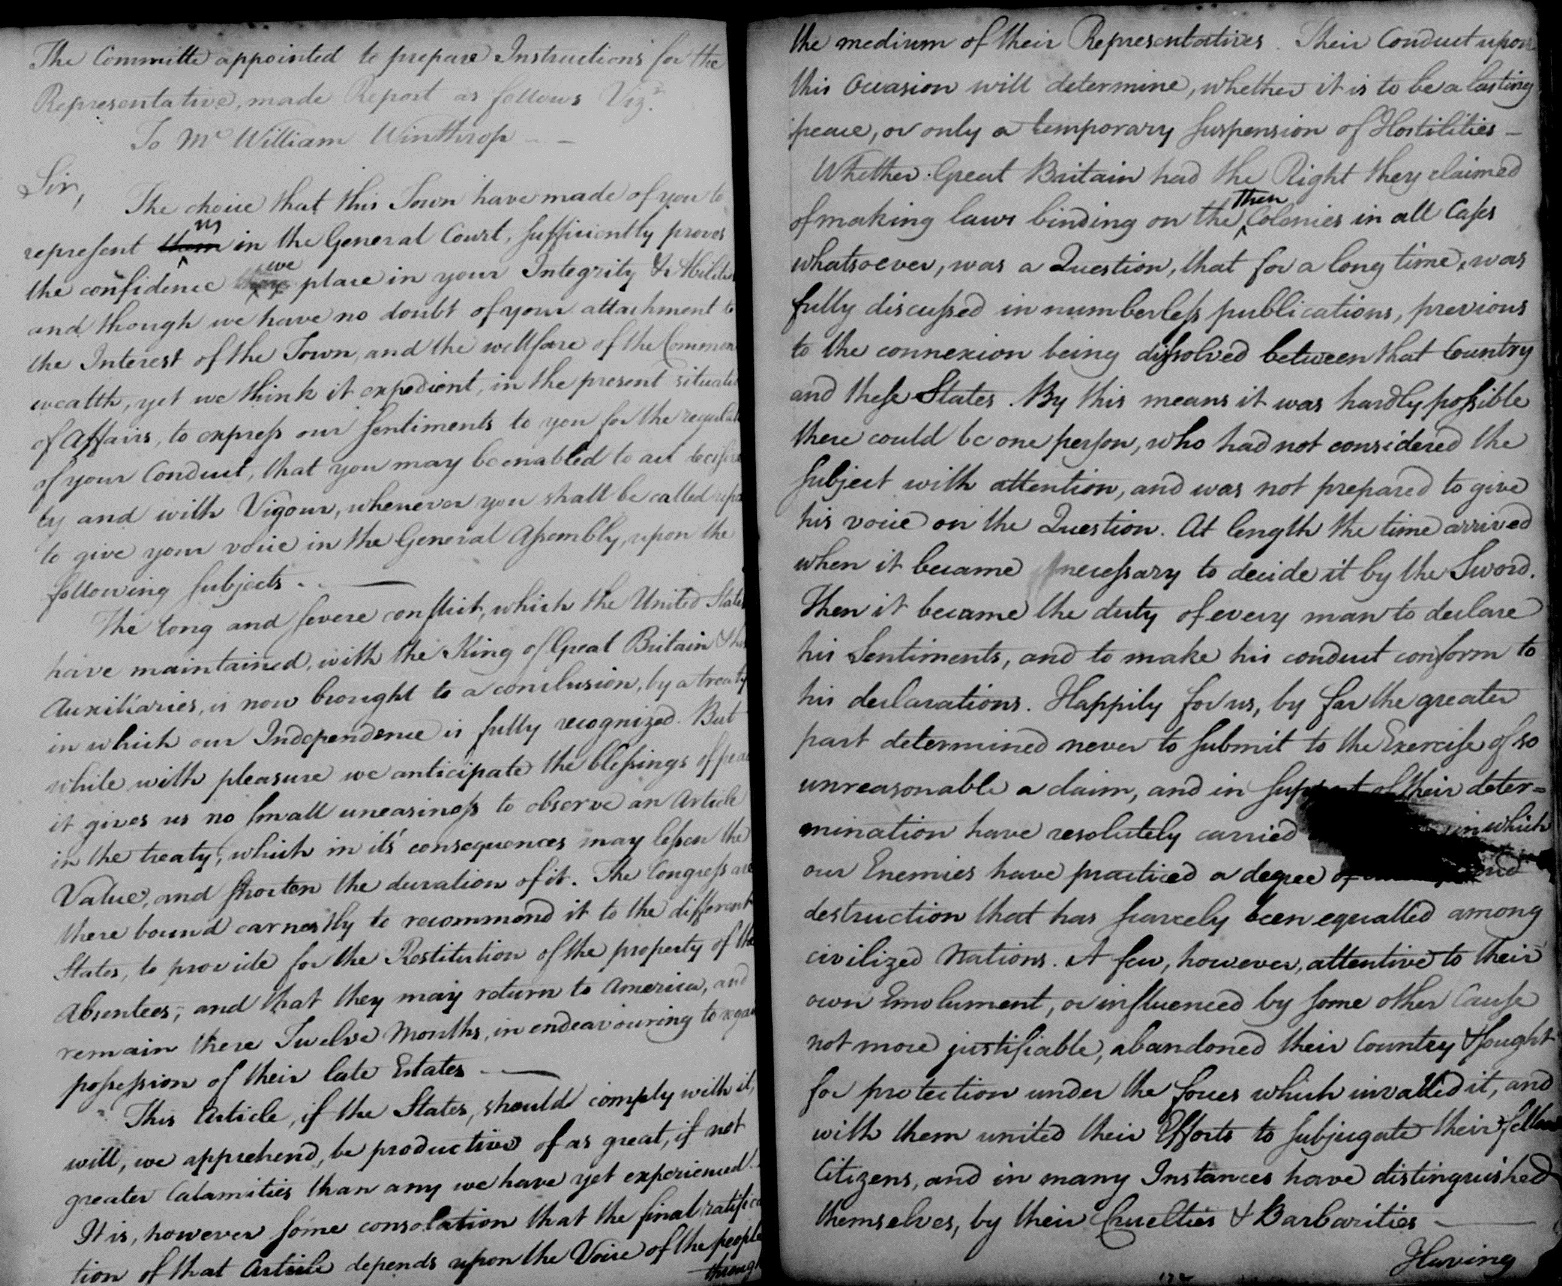 The Committe appointed to prepare Instructions for the
Representative, made Report as follows Viz.t
To Mr William Winthrop - -
Sir,
The choice that this Town have made of you to
us
represent them in the General Court, sufficiently proves
we
the confidence place in your Integrity & Abilities
and though we have no doubt of your attachment to
the Interest of the Town, and the wellfare of the Common
wealth, yet we think it expedient, in the present situati
of Affairs, to express our Sentiments to you for the regulat
of your Conduct, that you may be enabled to act decisive
ly and with Vigour, whenever you shall be called upo
to give your voice in the General Assembly, upon the
following subjects. —
The long and severe conflict, which the United State
have maintained, with the King of Great Britain & h
Auxiliaries, is now brought to a conclusion, by a treaty
in which our Independence is fully recognized. But
while with pleasure we anticipate the blessings of pea
it gives us no small uneasiness to observe an Article
in the treaty, which in it's consequences may lessen the
Value, and shorten the duration of it. The Congress are
there bound earnestly to recommend it to the different
States, to provide for the Restitution of the property of the
Absentees; and that they may return to America, and
remain there Twelve Months, in endeavouring to rega
possession of their late Estates —
This Article, if the States, should comply with it,
will, we apprehend, be productive of as great, if not
greater Calamities than any we have yet experienced.
It is, however some consolation that the final ratifica
tion of that Article depends upon the Voice of the people
through
the medium of their Representatives. Their Conduct upon
this Occasion will determine, whether it is to be a lasting
peace, or only a temporary Suspension of Hostilities —
Whether Great Britain had the Right they claimed
then
of making laws binding on the Colonies in all Cases
whatsoever, was a Question, that for a long time, was
fully discussed in numberless publications, previous
to the connexion being dissolved between that Country
and these States. By this means it was hardly possible
there could be one person, who had not considered the
Subject with attention, and was not prepared to give
his voice on the Question. At length the time arrived
when it became necessary to decide it by the Sword.
Then it became the duty of every man to declare
his Sentiments, and to make his conduct conform to
his declarations. Happily for us, by far the greater
part determined never to submit to the Exercise of so
unreasonable a claim, and in support of their deter=
mination have resolutely carried in which
our Enemies have practiced a degree of and
destruction that has scarcely been equalled among
civilized Nations. A few, however, attentive to their
own Emolument, or influenced by some other Cause
not more justifiable, abandoned their Country & sought
for protection under the forces which invaded it, and
with them united their Efforts to subjugate their fellow
Citizens, and in many Instances have distinguished
themselves, by their Cruelties & Barbarities —
Having